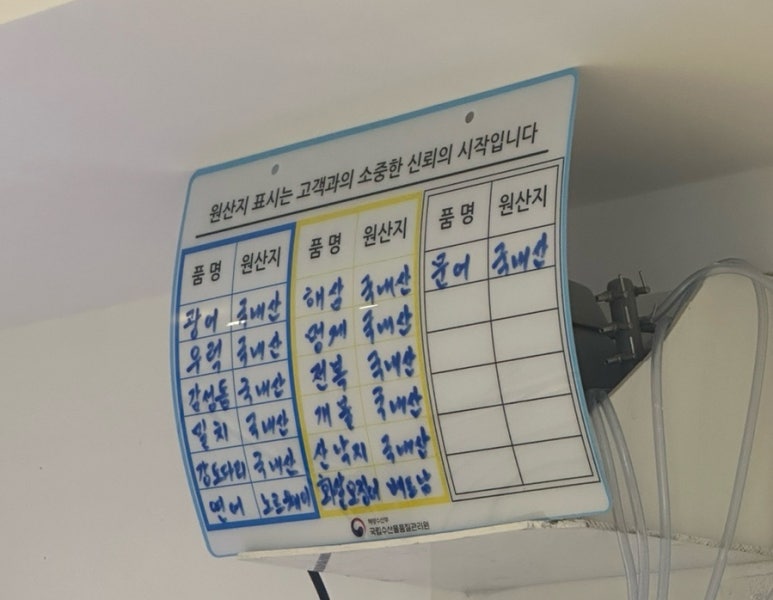 원산지 표시는 고객과의 소중한 신뢰의 시작입니다
품명 원산지
광어 국내산
우럭 국내산
감성돔 국내산
밀치 국내산
강도다리 국내산
연어 노르웨이
품명 원산지
해삼 국내산
멍게 국내산
전복 국내산
개불 국내산
산낙지 국내산
화살오징어 베트남
품명 원산지
문어 국내산
해양수산부
국립수산물품질관리원